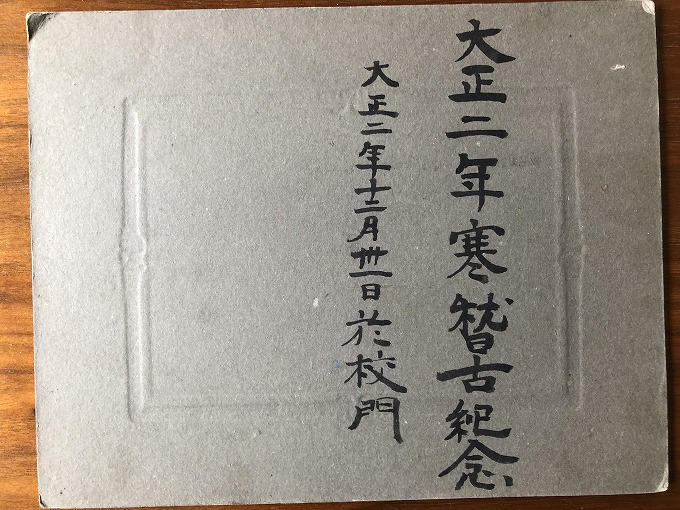 大正二年寒稽古紀念
大正二年十二月卅一日於校門